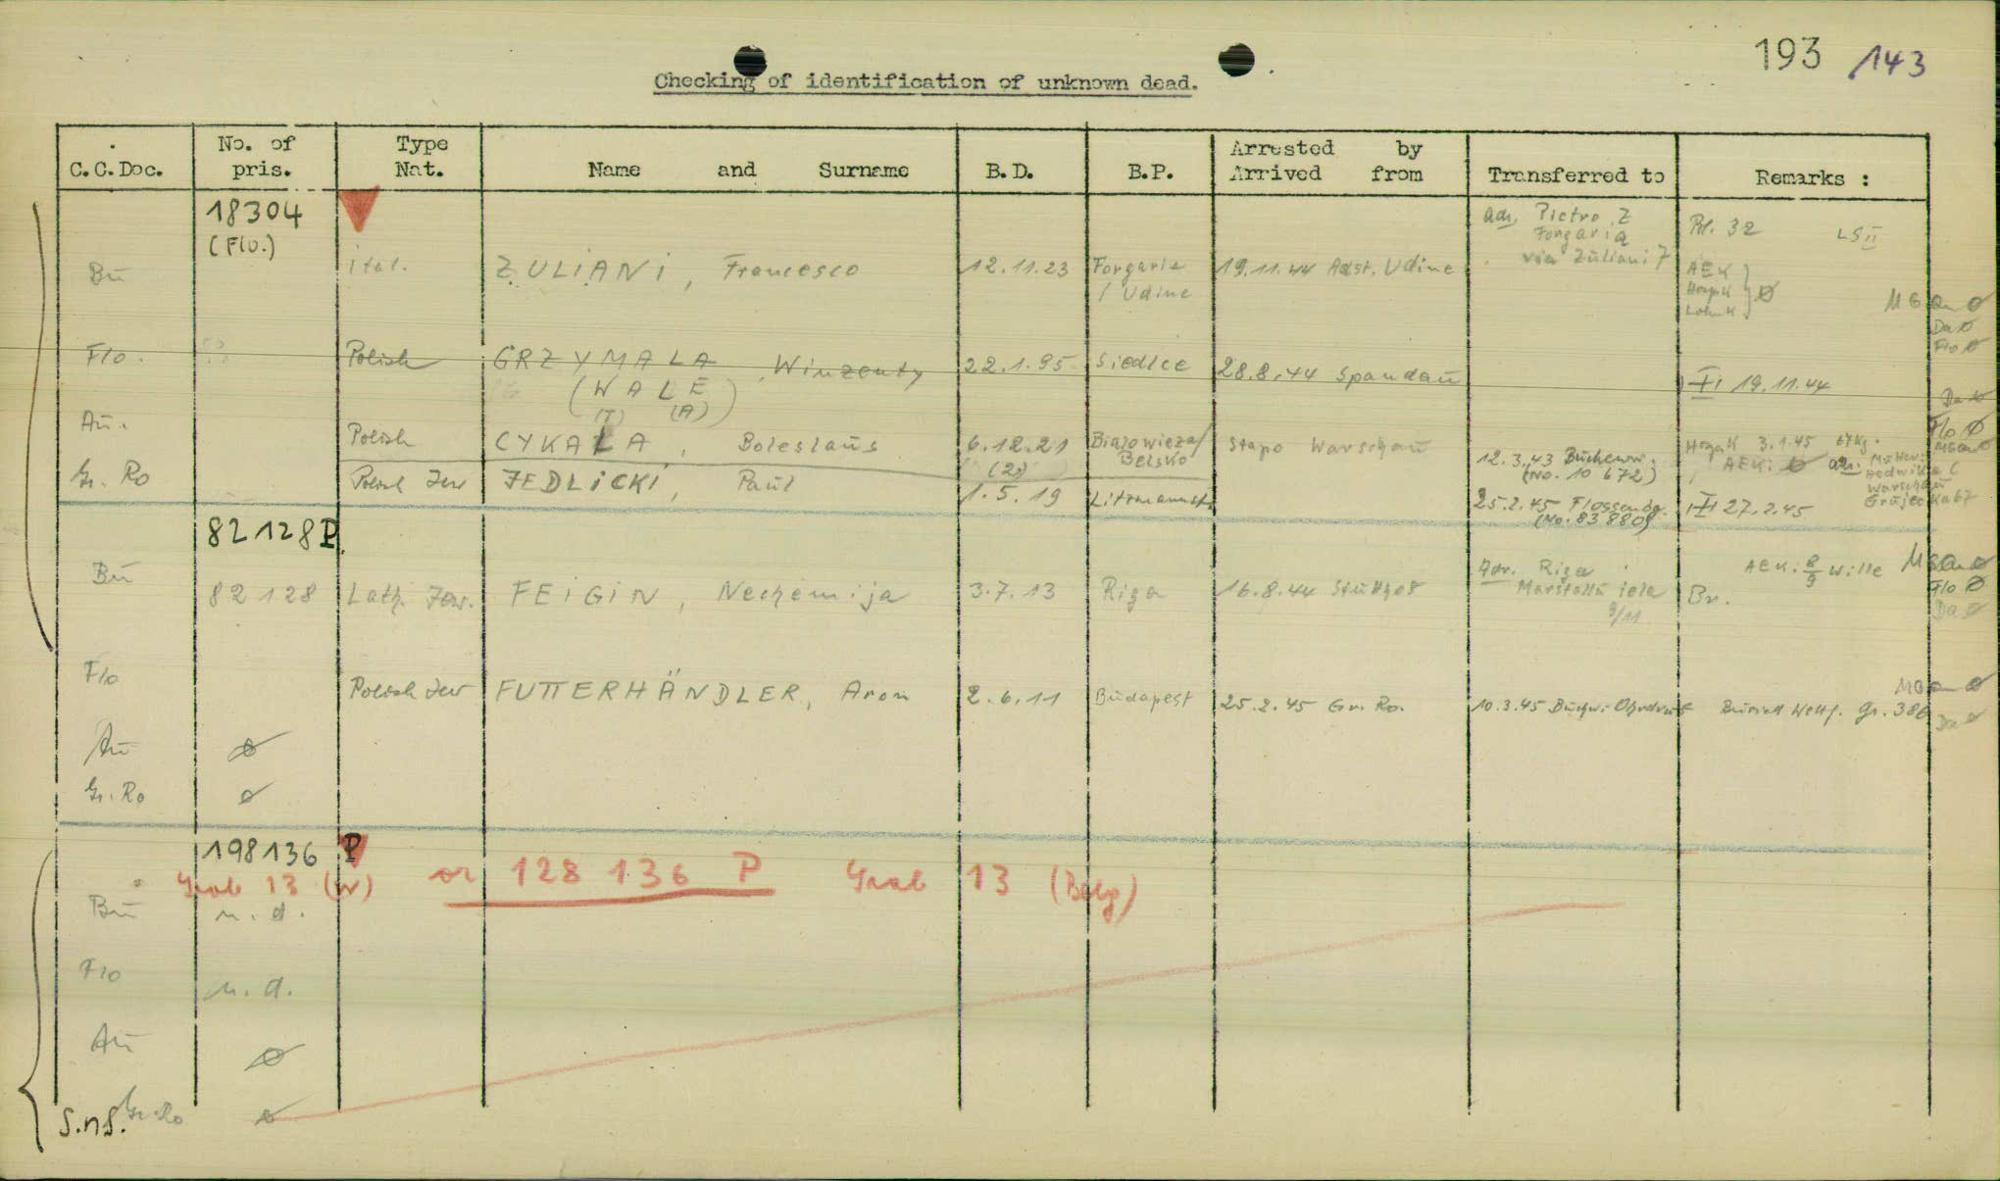 193 143
Checking of identification of unknown dead.
C.C.Doc. No. of pris. Type Nat. Name and Surname B.D. B.P. Arrested by Arrived from Transferred to Remarks :
18304
(Flo.)
Adr. Pietro Z
Forgaria
via Zuliani 7
Bl. 32 LS II
Bū ital. ZULIANI, Francesco 12.11.23 Forgaria / Udine 19.11.44 Adst. Udine
AEK
Ø
Da Ø
Flo Ø
Flo. Polish GRZYMALA, Winzenty 22.1.95 Siedlce 28.8.44 Spandaū 19.11.44
(WALE)
(T) (A)
Da Ø
Flo Ø
Aū. Polish CYKALA, Boleslaūs 6.12.21 Bialowieza/ Belsko Stapo Warschaū
(2)
12.3.43 Būchenw.
(No. 10 672)
3.1.45 67 Kg.
AEK: Ø adr. Mūtter:
Hedwika C
Warschaū
Grūjecka 67
Gr. Ro Polish Jew JEDLICKI, Paūl 1.5.19 Litzmannst.
25.2.45 Flossenbg.
(No. 83 880)
27.2.45
82128 P.
Bū 82128 Lath. Jew. FEIGIN, Nechemija 3.7.13 Riga 16.8.44 Stūtthof
Adr. Riga
Marstallū iela
9/11
Br.
AEK: 8/9 Wille
Flo Ø
Da Ø
Flo Polish Jew FUTTERHÄNDLER, Aron 2.6.11 Būdapest 25.2.45 Gr. Ro. 10.3.45 Būchw. Ohrdrūf gr. 386
Da Ø
Aū Ø
Gr. Ro Ø
198136 P
Grab 13 (W) or 128 136 P Grab 13 (Belg)
Bū n. d.
Flo n. d.
Aū Ø
S.nS. Gr. Ro Ø